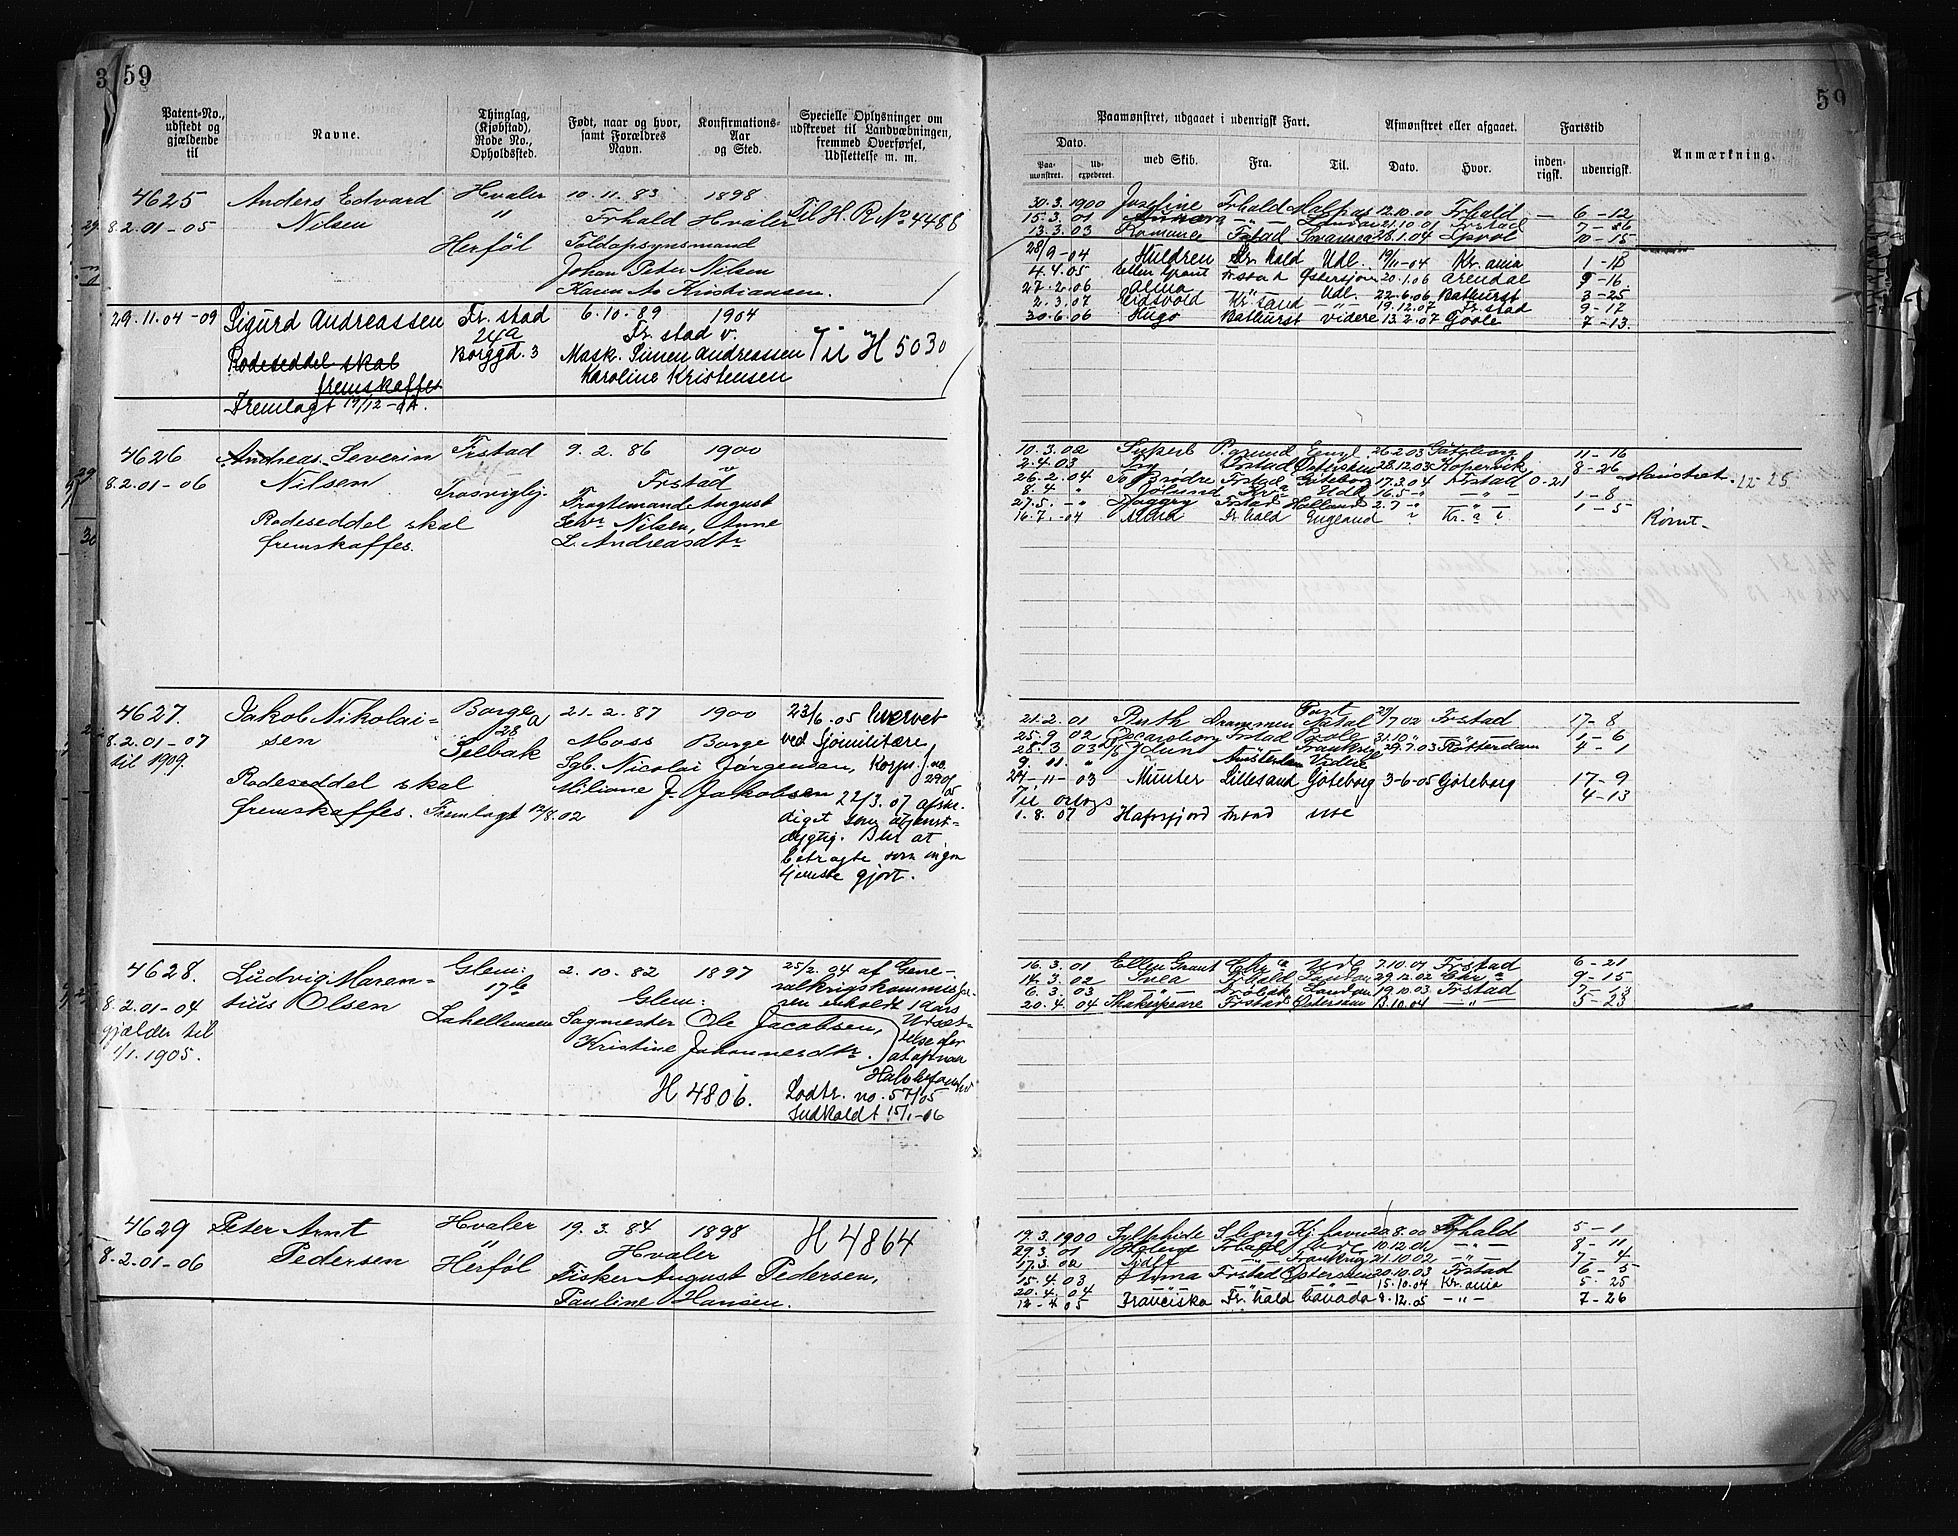 3 59
Patent-No., udstedt og gjældende til
Navne.
Thinglag, (Kjøbstad), Rode No., Opholdssted.
Født, naar og hvor, samt Forældres Navn.
Konfirmations-Aar og Sted.
Specielle Oplysninger om udskrevet til Landværdningen, fremmed Overførsel, Udslettelse m. m.
4625 Anders Edvard Hvaler 10.11.83 1898
8.2.01-05 Nilsen " Frhald Hvaler Til H. R. No 4488
Herføl Toldopsynsmand
Johan Peter Nilsen
Karen A. Kristiansen.
29.11.04-09 Sigurd Andreassen Fr.stad 6.10.89 1904
24a Fr.stad v.
Rodeseddel skal Borggd. 3 Mask. Simen Andreassen Til H 5030
fremskaffes Karoline Kristensen
Fremlagt 19/12-04.
4626 Andreas Severin Frstad 9.2.86 1900
8.2.01-06 Nilsen Trosvigbg. Frstad
Fragtemand August
Rodeseddel skal Sevr. Nilsen, Anne
fremskaffes. L. Andreasdtr
4627. Jakob Nikolai- Borge 21-2.87 1900 23/6.05 hvervet
8.2.01-07 sen 28a Moss Borge ved Sjømilitære
til 1909. Selbak Sgb. Nicolai Jørgensen, Korps.
Rodeseddel skal Miliane J. Jakobsen
fremskaffes. Fremlagt 12/8.02 22/3.07 afske-
diget som utjenst-
dygtig. Blir at
betragte som ingen
tjeneste gjort.
4628. Ludvig Maren- Glem: 2.10.82 1897 25/2.04 af Gene-
8.2.01-04 tius Olsen 17b Glem: ralkrigskommissæ-
ren erholdt 1 aars
gjælder til Lahellemoen Sagmester Ole Jacobsen, Udsæt-
1/1.1905. Kristine Johannesdtr. telse
H 4806. Lodtr. no. 57/05
Indkaldt 15/1-06
4629 Peter Arnt Hvaler 19.3.84 1898 H 4864
8.2.01-06 Pedersen " Hvaler
Herføl Fisker August Pedersen,
Pauline Hansen.
59
Paamønstret, udgaaet i udenrigsk Fart.
Afmønstret eller afgaaet.
Fartstid
Anmærkning.
Dato.
Paa-mønstret. Ud-expederet. med Skib. Fra. Til. Dato. Hvor. inden-rigsk. udenrigsk.
30.3.1900 Josefine Frhald 12.10.00 Frhald — 6-12
15.3.01 -"- London 21.10.01 Frstad 7-26
13.3.03 Romance Fstad Swansea 28.1.04 10-15
28/9-04 Huldren Fr.hald Udl. 19/11-04 Kr.ania
4.4.05 Ellen Grant Fr.stad Østersjøen 20.1.06 Arendal 9-16
27.2.06 Alma " Udl. 22.6.06 Bathurst 3-25
2.3.07 Eidsvold Kr.sand -"- 19.12.07 Fr.stad 9-17
30.6.06 Hugo Bathurst videre 13.2.07 Goole 7-13
10.3.02 Superb P.grund Engl. 26.2.03 Gøteborg 11-16
2.4.03 Frstad Østersøen 28.12.03 Kopervik 8-26
26.2.04 To Brødre Frstad Gøteborg 17.3.04 Frstad 0-21 Mønstret 12-25
8.4 " Udl. 16.5-" -"- 1-8
27.5.-" Frstad Holland 2.7-" " 1-5
16.7.-04 Alma Fr.hald England " Kr.a Rømt
21.2.01 Ruth Drammen Port Natal 29/7.02 Frstad 17-8
25.9.02 Oscarsborg Frstad Poole 31.10" -"- 1-6
28.3.03 Frankrig 29.7.03 Rotterdam 4-1
9.11. " Amsterdam Videre
24-11-03 Munter Lillesand Gøteborg 3-6-05 Gøteborg 17-9
Til orlogs 4-13
1.8.07 Hafrsfjord Frstad Udl
16.3.01 Ellen Grant Chra Udl 7.10.01 Frstad 6-21
14.3.02 Svea Frhald London 29.12.02 Chra 9-15
6.3.03 -"- Drøbak London 19.10.03 Frstad 7-13
20.4.04 Shakespeare Frstad Østersøen 13.10.04 -"- 5-23
19.3.1900 Sylphide S.borg Kj.havn 20.8.00 Frhald 5-1
29.3.01 Frhald Udl 10.12.01 -"- 8-11
17.3.02 -"- Frankrig 21.10.02 -"- 7-4
15.4.03 Anna Frstad Østersøen 20.10.03 Frstad 6-5
20.4.04 " -"- -"- 15.10.04 Kr.ania 5 25
12-4.05 Franciska Fr.hald Canada 8.12.05 -"- 7-26